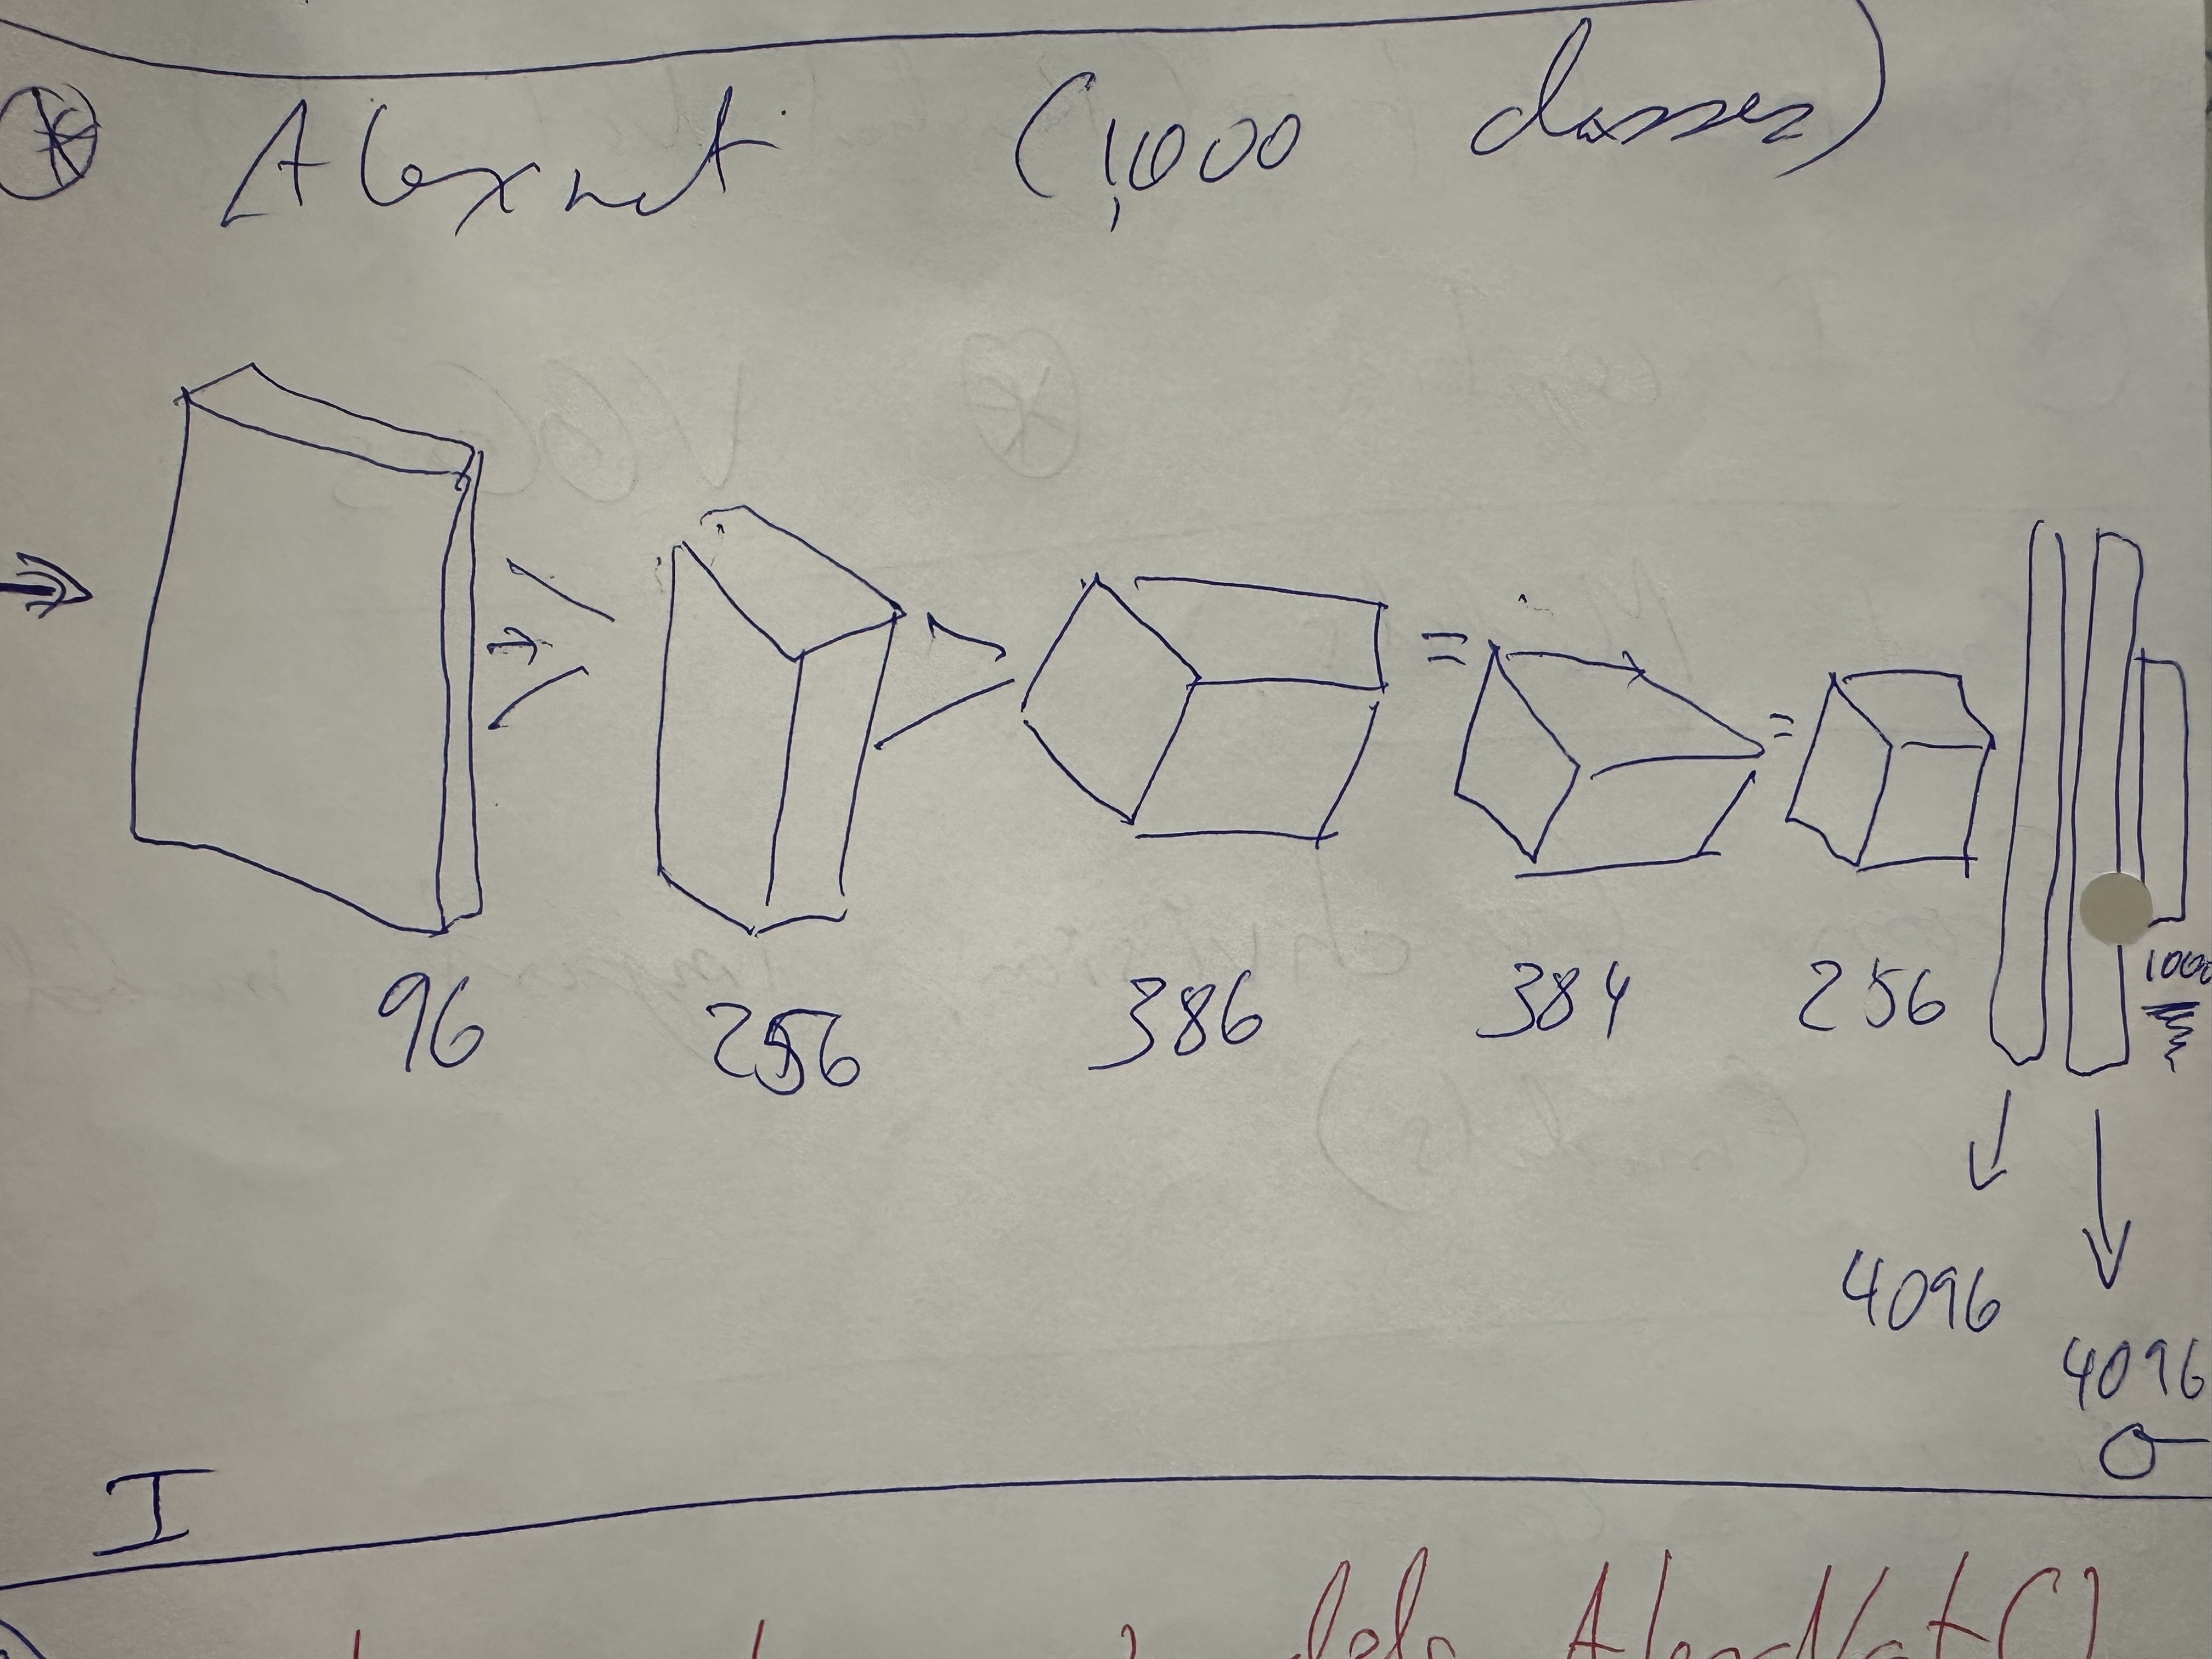 Alexnet (1,000 classes)
96 256 386 384 256 1000
4096
4096
I
AlexNet()